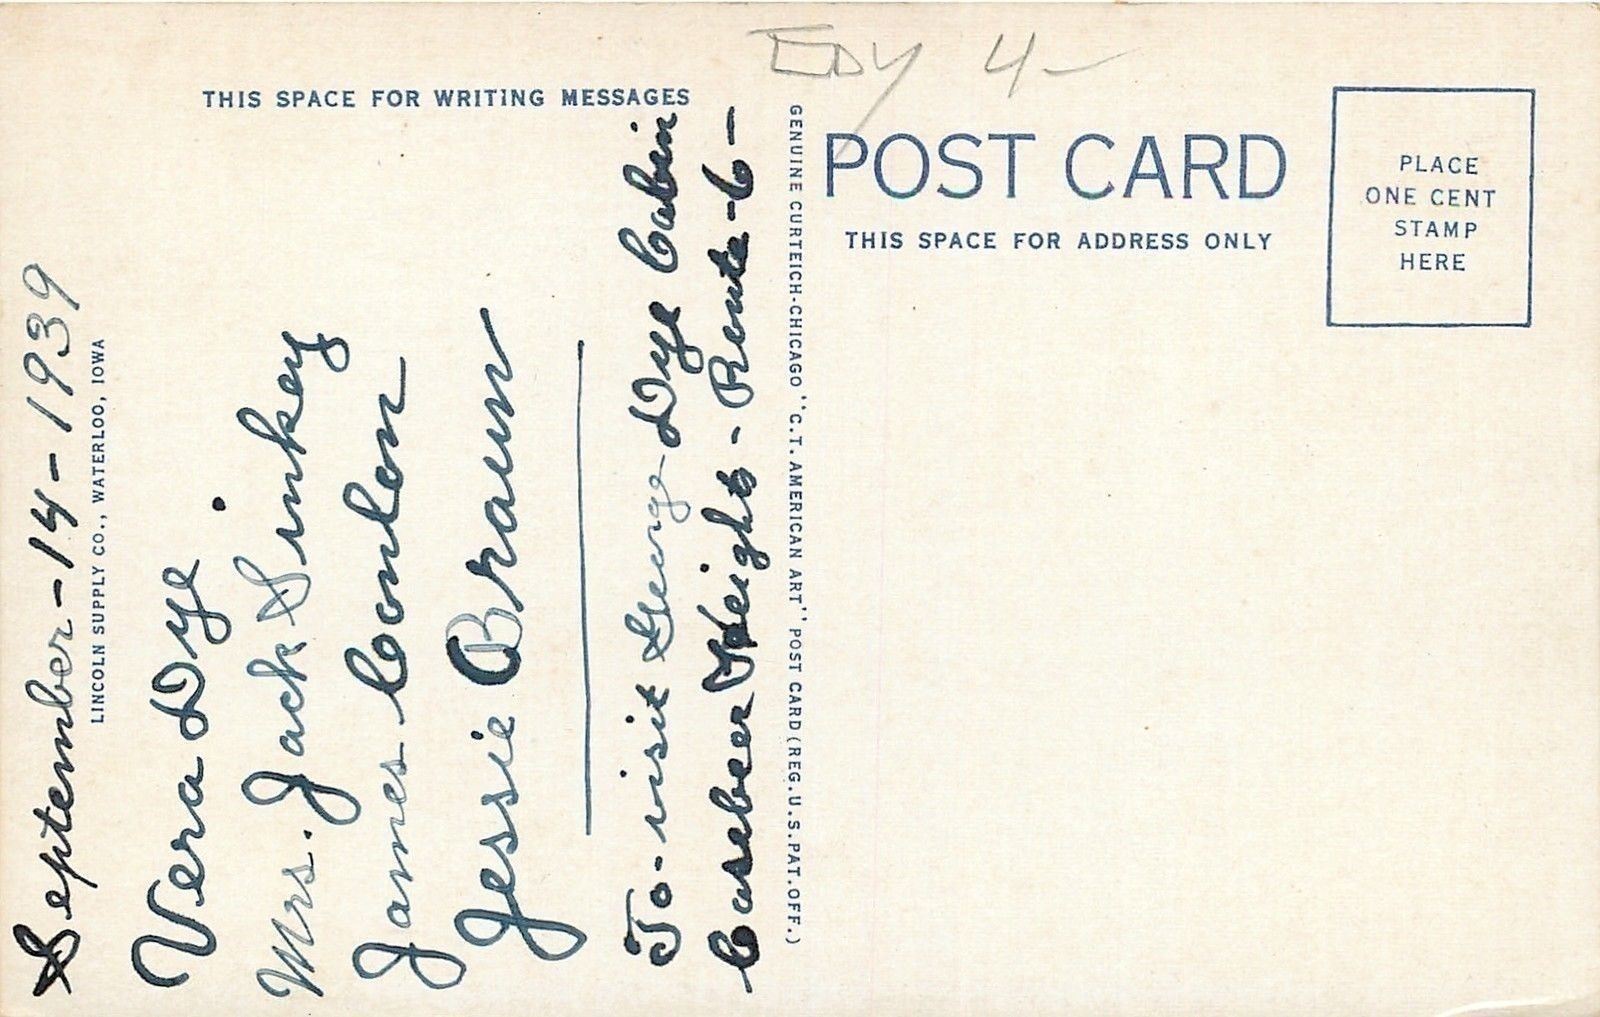 EDY 4-
THIS SPACE FOR WRITING MESSAGES
POST CARD
THIS SPACE FOR ADDRESS ONLY
PLACE
ONE CENT
STAMP
HERE
September-14-1939
LINCOLN SUPPLY CO., WATERLOO, IOWA
Vera Dye.
Mrs. Jack Sinkey
James Conlon
Jessie Braun
To-visit George Dye Cabin
Casebeer Heights - Route-6-
GENUINE CURTEICH-CHICAGO "C.T. AMERICAN ART" POST CARD (REG. U.S. PAT. OFF.)